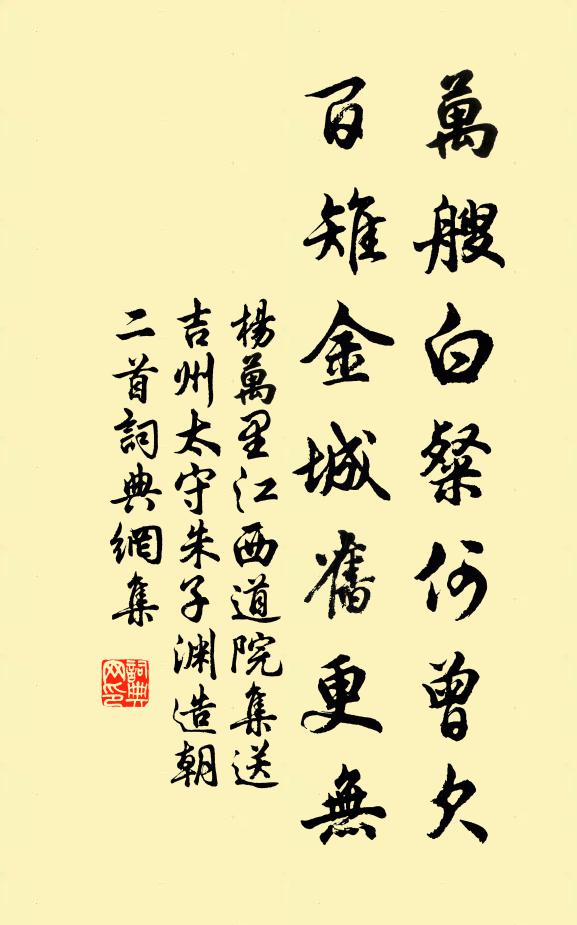 萬艘白粲何曾欠
百雉金城舊更無
楊萬里江西道院集送
吉州太守朱子渊造朝
二首詞典網集
詞典
网印